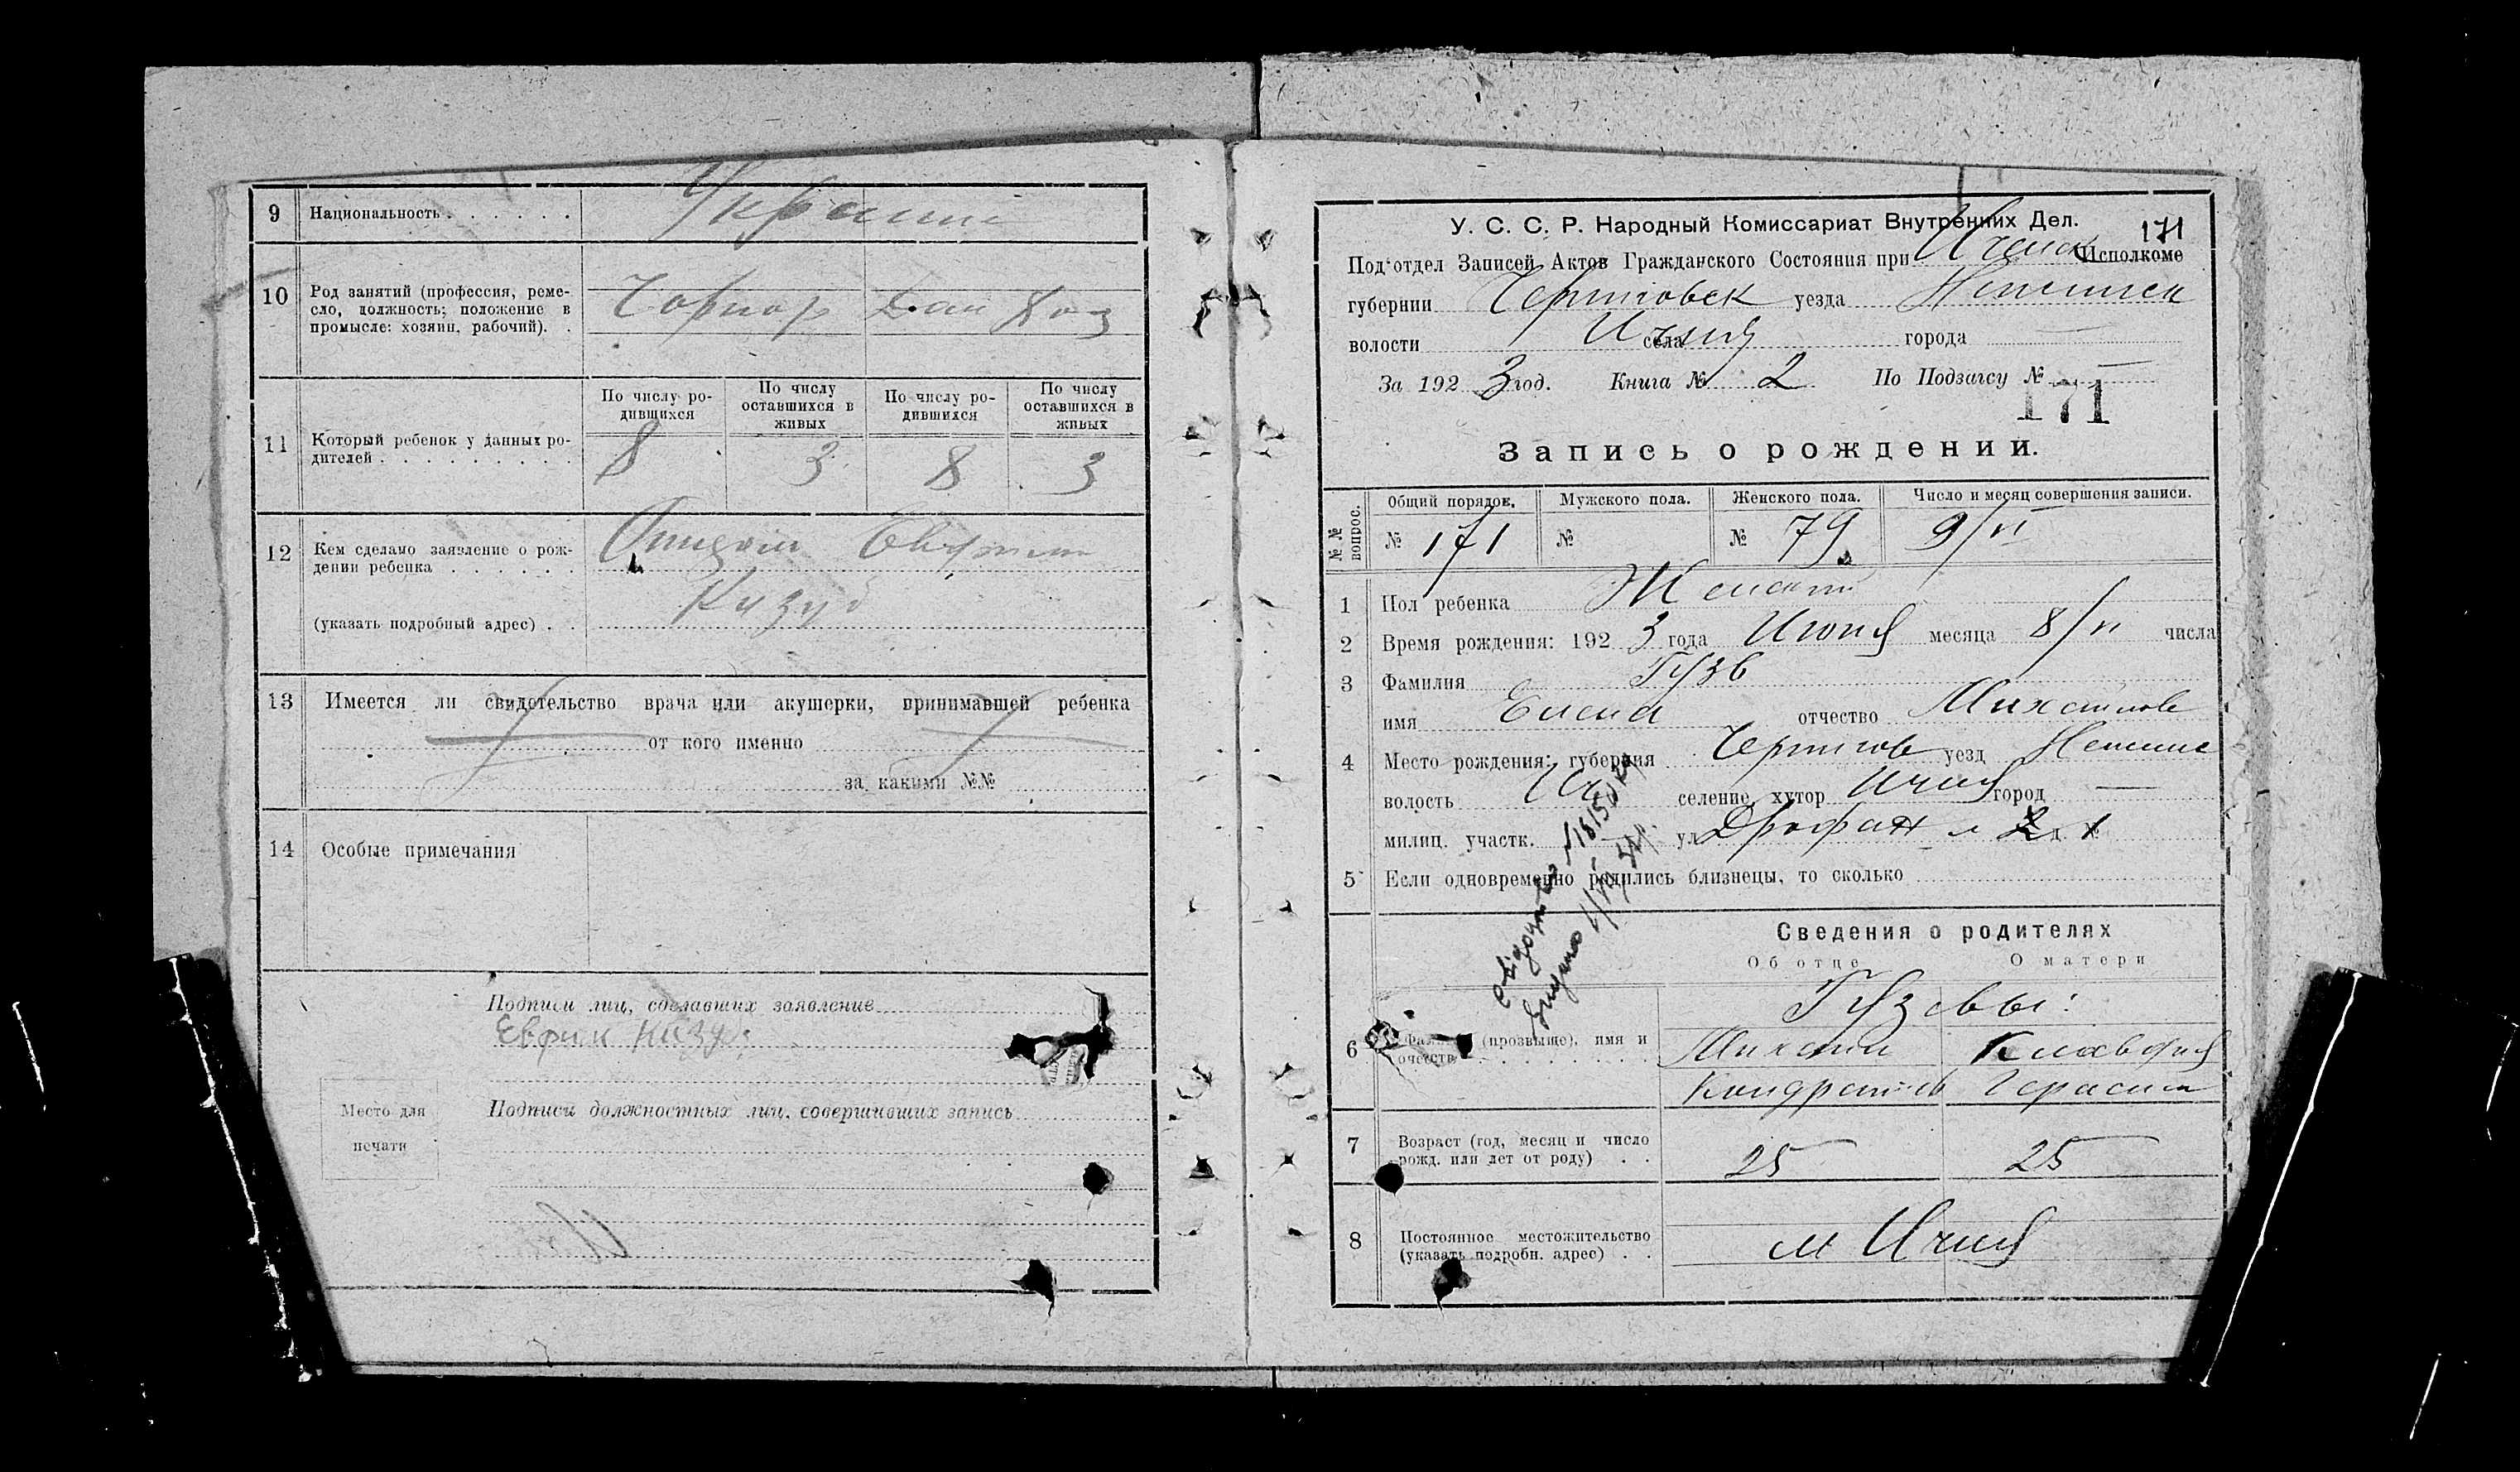 9 Национальность . . . . . .
10 Род занятий (профессия, реме-
сло, должность; положение в
промысле: хозяин, рабочий). .
Дом Хоз
11 Который ребенок у данных ро-
дителей . . . . . . . . .
По числу ро-
дившихся
По числу
оставшихся в
живых
По числу ро-
дившихся
По числу
оставшихся в
живых
8 3 8 3
12 Кем сделано заявление о рож-
дении ребенка . . . . . .
Кизуб
(указать подробный адрес) . .
13 Имеется ли свидетельство врача или акушерки, принимавшей ребенка
от кого именно
за какими №№
14 Особые примечания
Подписи лиц, сделавших заявление
Кизуб
Место для
печати
Подписи должностных лиц, совершивших запись
У. С. С. Р. Народный Комиссариат Внутренних Дел. 171
Под'отдел Записей Актов Гражданского Состояния при Ичнск Исполкоме
губернии Черниговск уезда Нежинск
волости села Ичня города —
За 192 3 год. Книга № 2 По Подзагсу № —
171
Запись о рождении.
№№ вопрос.
Общий порядок. Мужского пола. Женского пола. Число и месяц совершения записи.
№ 171 № № 79 9/VI
1 Пол ребенка
2 Время рождения: 192 3 года Июня месяца 8/VI числа
3 Фамилия Гузь
имя Елена отчество Михайлов
4 Место рождения: губерния Чернигов уезд Нежинс
волость Ич селение, хутор Ичня город —
милиц. участк. — ул
5 Если одновременно родились близнецы, то сколько
Сведения о родителях
Об отце О матери
6 (прозвище), имя и
Гузевы:
Михаил Клавдия
Кондратов Герасим
7 Возраст (год, месяц и число
рожд. или лет от роду) . .
25 25
8 Постоянное местожительство
(указать подробн. адрес) . .
м Ичня